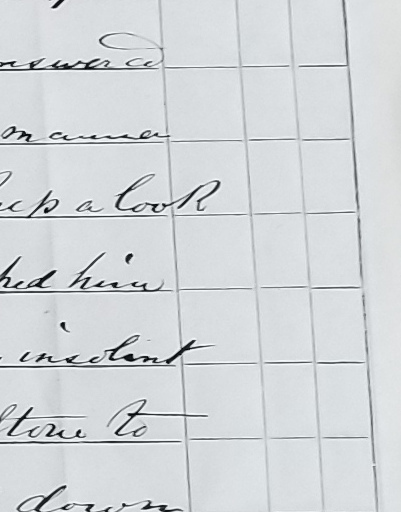 answered
manner
keep a look
him
insolent
stone to
down